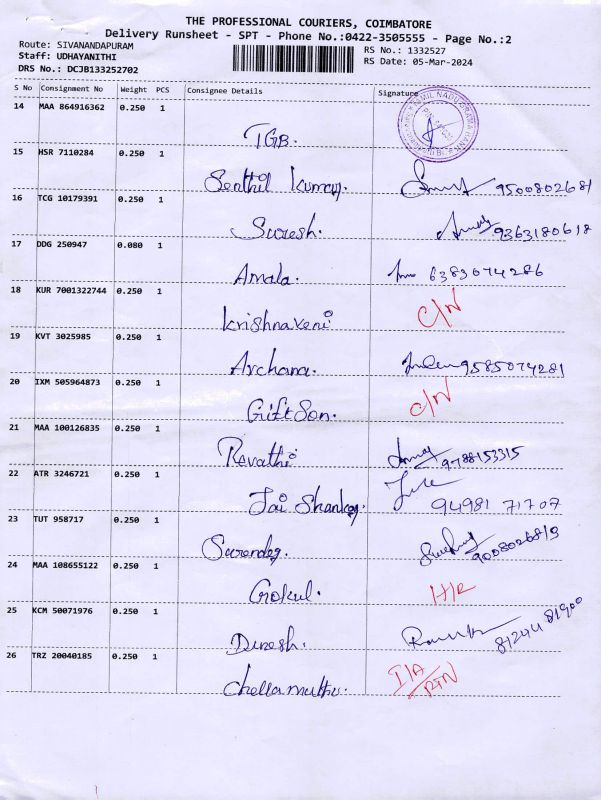 THE PROFESSIONAL COURIERS, COIMBATORE
Delivery Runsheet - SPT - Phone No.:0422-3505555 - Page No.:2
Route: SIVANANDAPURAM
RS No.: 1332527
Staff: UDHAYANITHI
RS Date: 05-Mar-2024
DRS No.: DCJB133252702
S No Consignment No Weight PCS Consignee Details Signature
14 MAA 864916362 0.250 1
TGB.
15 HSR 7110284 0.250 1
Senthil Kumar. 9500802681
16 TCG 10179391 0.250 1
Suresh. 9363180618
17 DDG 250947 0.080 1
Amala. 6383074286
18 KUR 7001322744 0.250 1
Krishnaveni C/N
19 KVT 3025985 0.250 1
Archana. 9585074281
20 IXM 505964873 0.250 1
Gift Son. C/N
21 MAA 100126835 0.250 1
Revathi 9788153315
22 ATR 3246721 0.250 1
Jai Shankar. 94981 71707
23 TUT 958717 0.250 1
Surender. 9008026819
24 MAA 108655122 0.250 1
Gokul.
25 KCM 50071976 0.250 1
Dinesh. 8124481900
26 TRZ 20040185 0.250 1
Chellamuthu. I/A
RTN